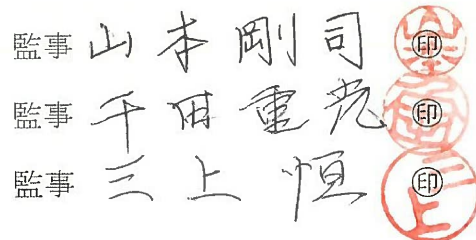 監事 山本剛司 ㊞
監事 千田重光 ㊞
監事 三上恒 ㊞